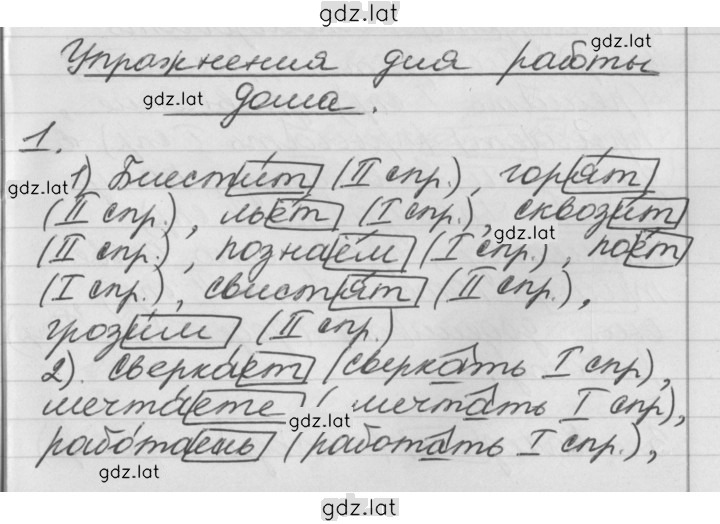 gdz.lat
Упражнения для работы
gdz.lat
gdz.lat дома.
1.
1) Блестит (II спр.), горят
gdz.lat
(II спр.), льёт (I спр.), сквозит
gdz.lat
(II спр.), познаём (I спр.), поёт
(I спр.), свистят (II спр.),
грозим (II спр.)
2). сверкает (сверкать I спр.),
мечтаете (мечтать I спр.),
gdz.lat
работаешь (работать I спр.),
gdz.lat
gdz.lat